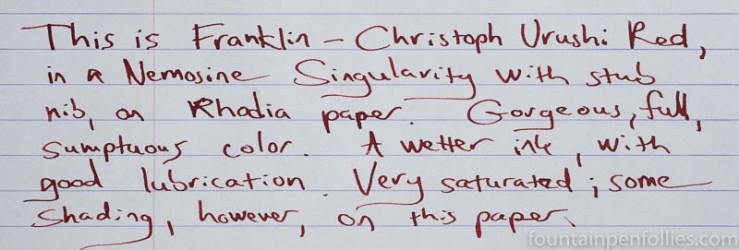 This is Franklin - Christoph Urushi Red,
in a Nemosine Singularity with stub
nib, on Rhodia paper. Gorgeous, full,
sumptuous color. A wetter ink, with
good lubrication. Very saturated; some
shading, however, on this paper.
fountainpenfollies.com